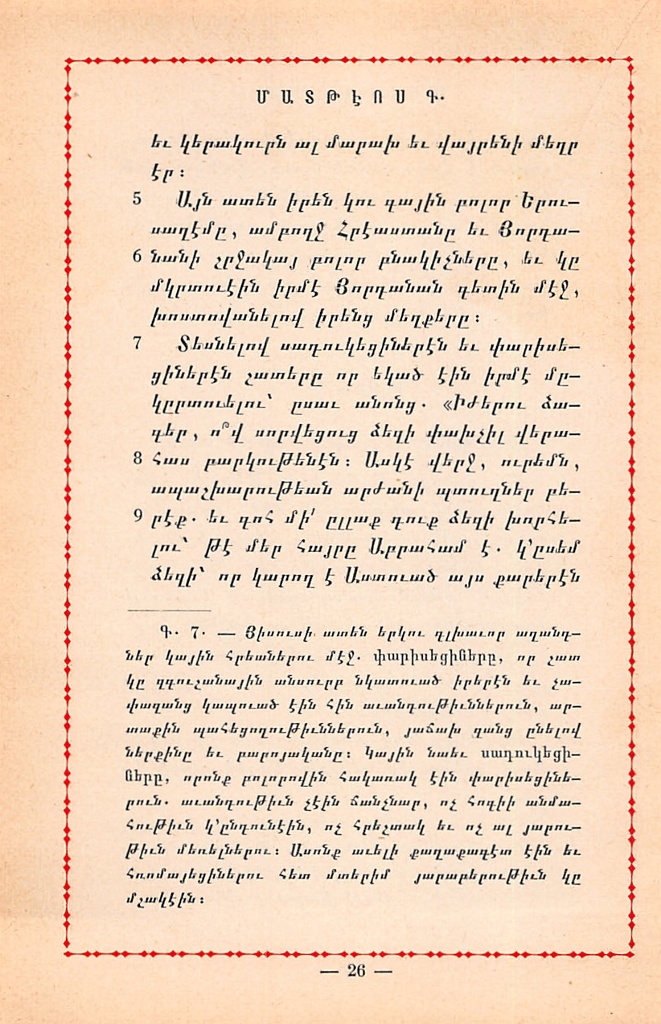 ՄԱՏԹԷՈՍ Գ.
եւ կերակուրն ալ մարախ եւ վայրենի մեղր
էր :
5 Այն ատեն իրեն կու գային բոլոր Երու-
սաղէմը, ամբողջ Հրէաստանը եւ Յորդա-
6 նանի շրջակայ բոլոր բնակիչները, եւ կը
մկրտուէին իրմէ Յորդանան գետին մէջ,
խոստովանելով իրենց մեղքերը :
7 Տեսնելով սադուկեցիներէն եւ փարիսե-
ցիներէն շատերը որ եկած էին իրմէ մը-
կըրտուելու՝ ըսաւ անոնց. «Իժերու ձա-
գեր, ո՞վ սորվեցուց ձեզի փախչիլ վերա-
8 հաս բարկութենէն : Ասկէ վերջ, ուրեմն,
ապաշխարութեան արժանի պտուղներ բե-
9 րէք. եւ գոհ մի՛ ըլլաք դուք ձեզի խորհե-
լու՝ թէ մեր հայրը Աբրահամ է. կ՚ըսեմ
ձեզի՝ որ կարող է Աստուած այս քարերէն
Գ. 7. — Յիսուսի ատեն երկու գլխաւոր աղանդ-
ներ կային հրեաներու մէջ. փարիսեցիները, որ շատ
կը զգուշանային անսուրբ նկատուած իրերէն եւ չա-
փազանց կապուած էին հին աւանդութիւններուն, ար-
տաքին պահեցողութիւններուն, յաճախ զանց ընելով
ներքինը եւ բարոյականը : Կային նաեւ սադուկեցի-
ները, որոնք բոլորովին հակառակ էին փարիսեցինե-
րուն. աւանդութիւն չէին ճանչնար, ոչ հոգիի անմա-
հութիւն կ՚ընդունէին, ոչ հրեշտակ եւ ոչ ալ յարու-
թիւն մեռելներու : Ասոնք աւելի քաղաքագէտ էին եւ
հռոմայեցիներու հետ մտերիմ յարաբերութիւն կը
մշակէին :
— 26 —